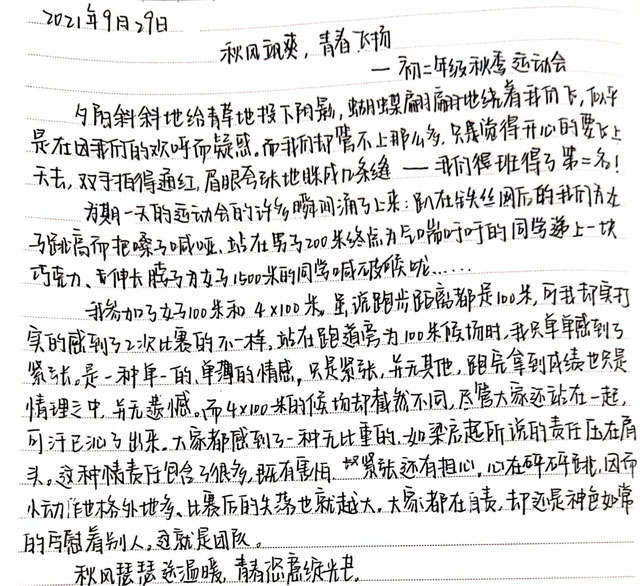 2021年9月29日
秋风飒爽，青春飞扬
——初二年级秋季运动会
夕阳斜斜地给青草地投下阴影，蝴蝶翩翩地绕着我们飞，似乎
是在因我们的欢呼而疑惑。而我们却管不上那么多，只觉得开心的要飞上
天去，双手拍得通红，眉眼夸张地眯成几条缝——我们得班得了第二名！
为期一天的运动会的许多瞬间涌了上来：趴在铁丝网后的我们为女
子跳高而把嗓子喊哑、站在男子200米终点为气喘吁吁的同学递上一块
巧克力、伸长脖子为女子1500米的同学喊破喉咙……
我参加了女子100米和4×100米。虽说跑步距离都是100米，可我却实打
实的感到了2次比赛的不一样。站在跑道旁为100米候场时，我只单单感到了
紧张。是一种单一的、单薄的情感，只是紧张，并无其他，跑完拿到成绩也只是
情理之中，并无遗憾。而4×100米的候场却截然不同，尽管大家还站在一起，
可汗已沁了出来。大家都感到了一种无比重的、如梁启超所说的责任压在肩
头。这种情责任包含了很多，既有害怕、紧张还有担心。心在砰砰跳，因而
小动作也格外地多、比赛后的失落也就越大。大家都在自责，却还是神色如常
的安慰着别人，这就是团队。
秋风瑟瑟送温暖，青春恣意绽光芒。